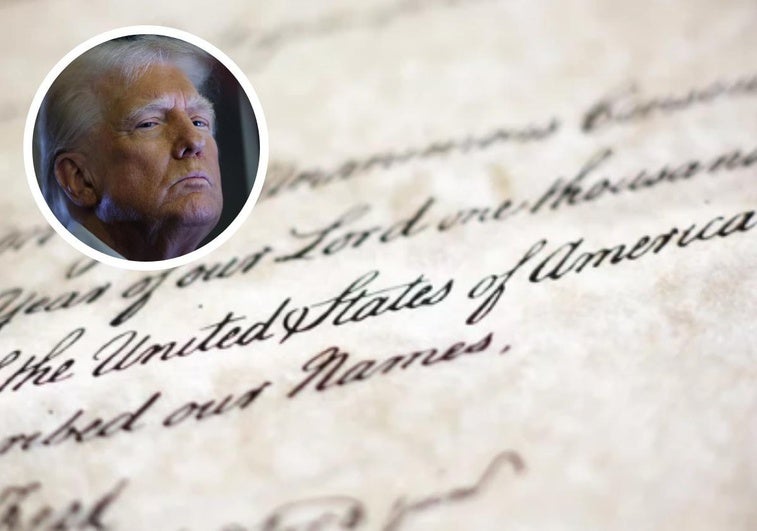 Unanimous Consen
Year of our Lord one thousan
the United States of America
ribed our Names.